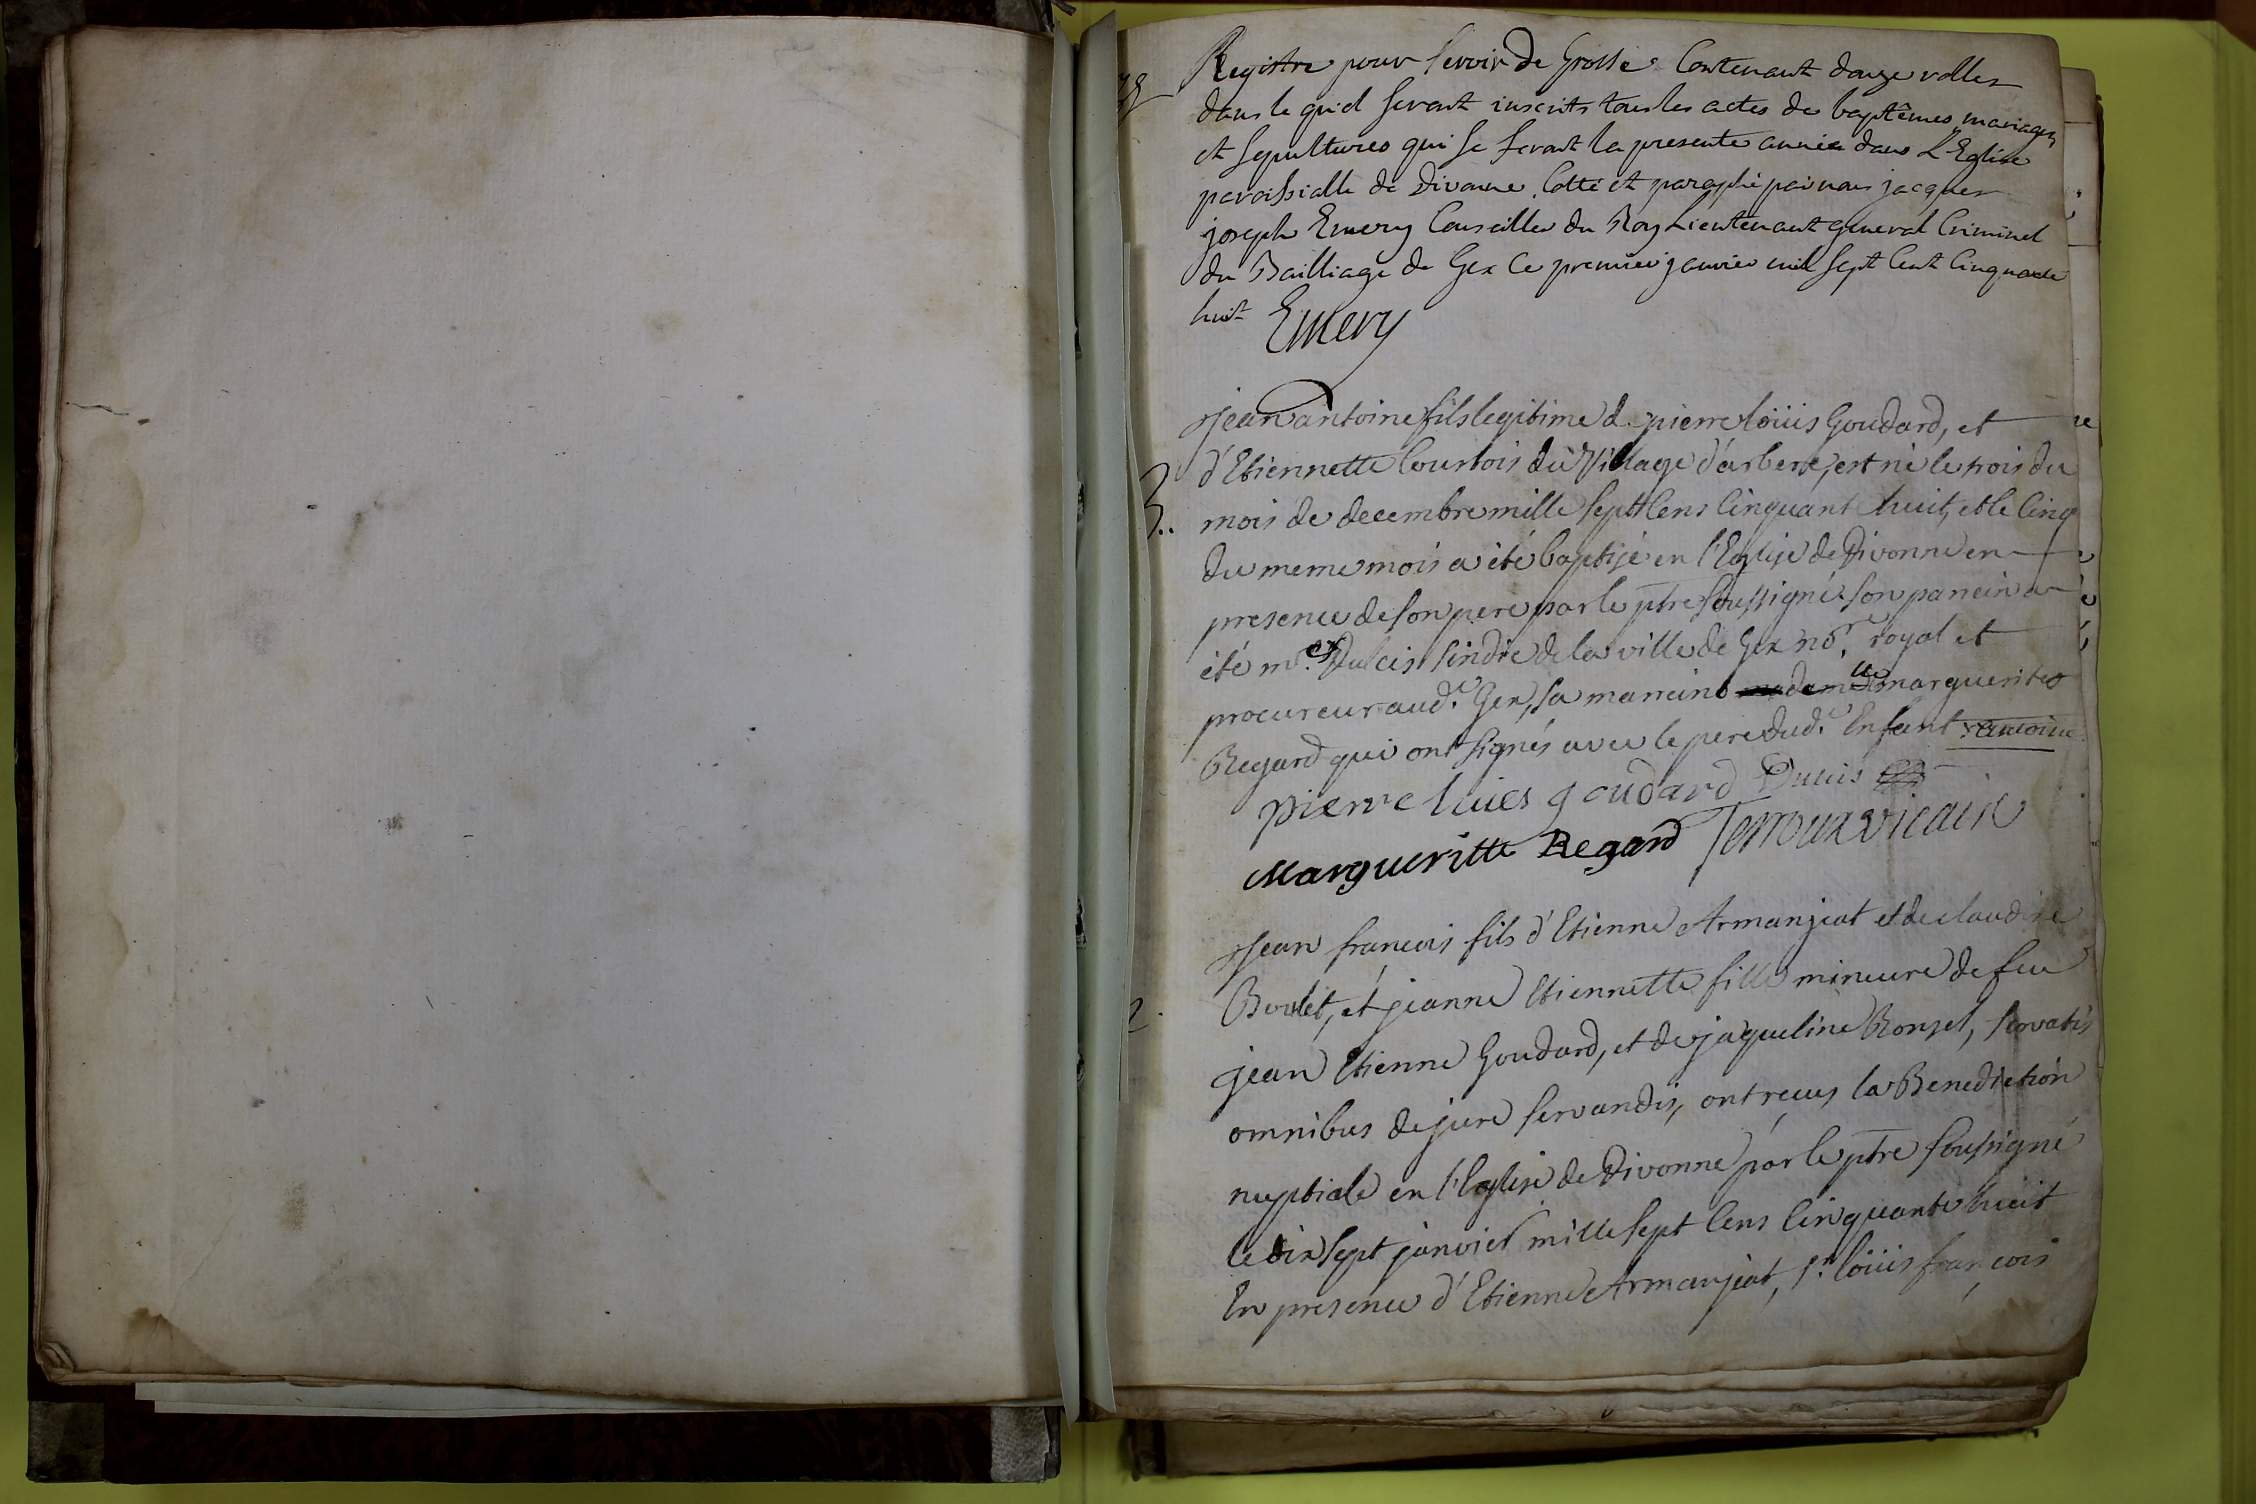 Registre pour servir de Grosse Contenant douze rolles
dans le quel seront inscrits tous les actes de baptêmes mariages
et sepultures qui se feront la presente année dans L'Eglise
paroissialle de Divonne Cotté et paraphé par nous jacques
joseph Emery Conseiller du Roy Lieutenant general Criminel
du Bailliage de Gex Ce premier janvier mil sept Cent Cinquante
huit Emery
Jean antoine fils legitime de pierre loüis Goudard, et
d'Etiennette Courtois du Village d'arbere, est né le trois du
3.. mois de decembre mille sept Cens Cinquant huit, et le Cinq
du meme mois a été baptisé en l'Eglise de Divonne en
presence de son pere par le ptre soussigné. son parrein a
été mre. Ducis sindic de la ville de Gex nore. royal et
procureur aud. Gex, sa marreine demlle marguerite
Regard qui ont signés avec le pere dud. Enfant
pierre luies goudard Ducis
Margueritte Regard Terroux vicaire
Jean francois fils d'Etienne Armanjeat et de claudine
Bordet, et jeanne Etiennette fille mineure de feu
2. jean Etienne Goudard, et de jaqueline Ronzel, servatis
omnibus de jure servandis, ont reçus la Benediction
nuptiale en l'Eglise de Divonne par le ptre soussigné
le dix sept janvier mille sept Cens Cinquante huit
En presence d'Etienne Armanjeat, sr. loüis françois